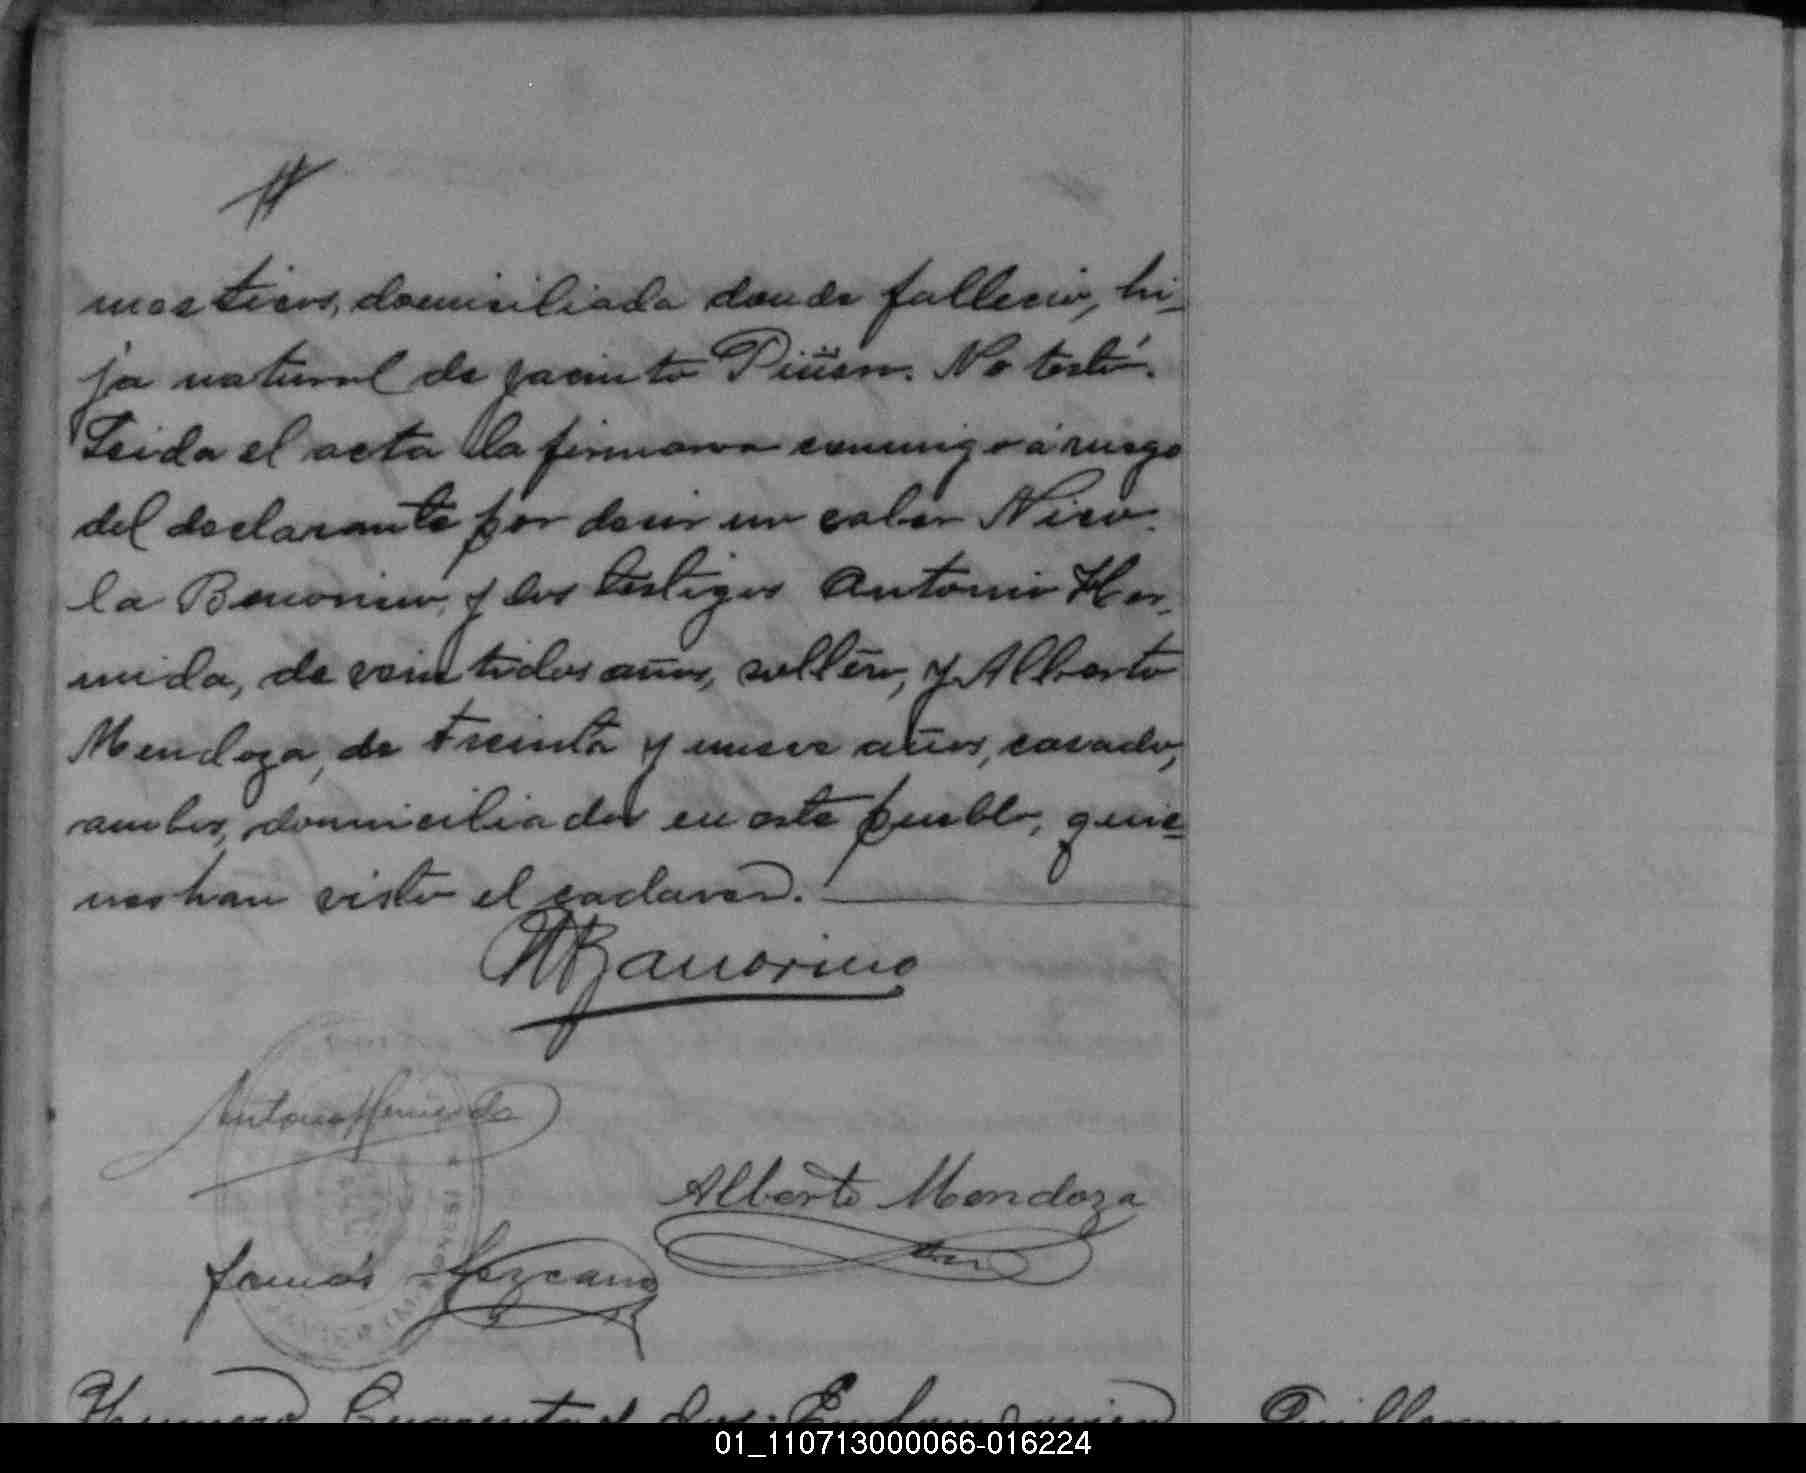 mesticos, domiciliada donde fallecio, hi-
ja natural de Jacinto. No testó.
Leida el acta la firmaron conmigo á ruego
del declarante por decir no saber Nico-
la Banorino, y los testigos Antonio Her-
mida, de veintidos años, soltero, y Alberto
Mendoza, de treinta y nueve años, casado,
ambos, domiciliados en este pueblo, quie-
nes han visto el cadaver.
NBanorino
Antonio Hermida
Alberto Mendoza
Tomás Lezcano
Numero Cuarenta y dos: En
Guillermo
01_110713000066-016224